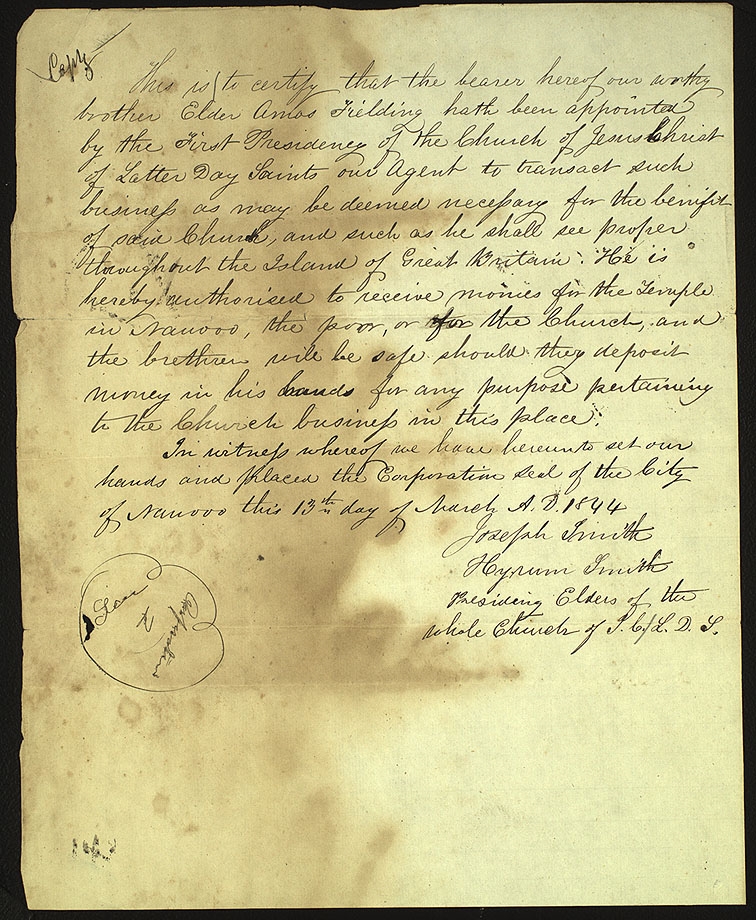 Copy
This is to certify that the bearer hereof our worthy
brother Elder Amos Fielding hath been appointed
by the First Presidency of the Church of Jesus Christ
of Latter Day Saints our Agent to transact such
business as may be deemed necessary for the benifit
of said Church, and such as he shall see proper
throughout the Island of Great Britain. He is
hereby authorised to receive monies for the Temple
in Nauvoo, the poor, or for the Church, and
the brethren will be safe should they deposit
money in his hands for any purpose pertaining
to the Church business in this place.
In witness whereof we have hereunto set our
hands and placed the Corporation seal of the City
of Nauvoo this 13th day of March A. D. 1844
Joseph Smith
Hyrum Smith
Presiding Elders of the
whole Church of J. C. L. D. S.